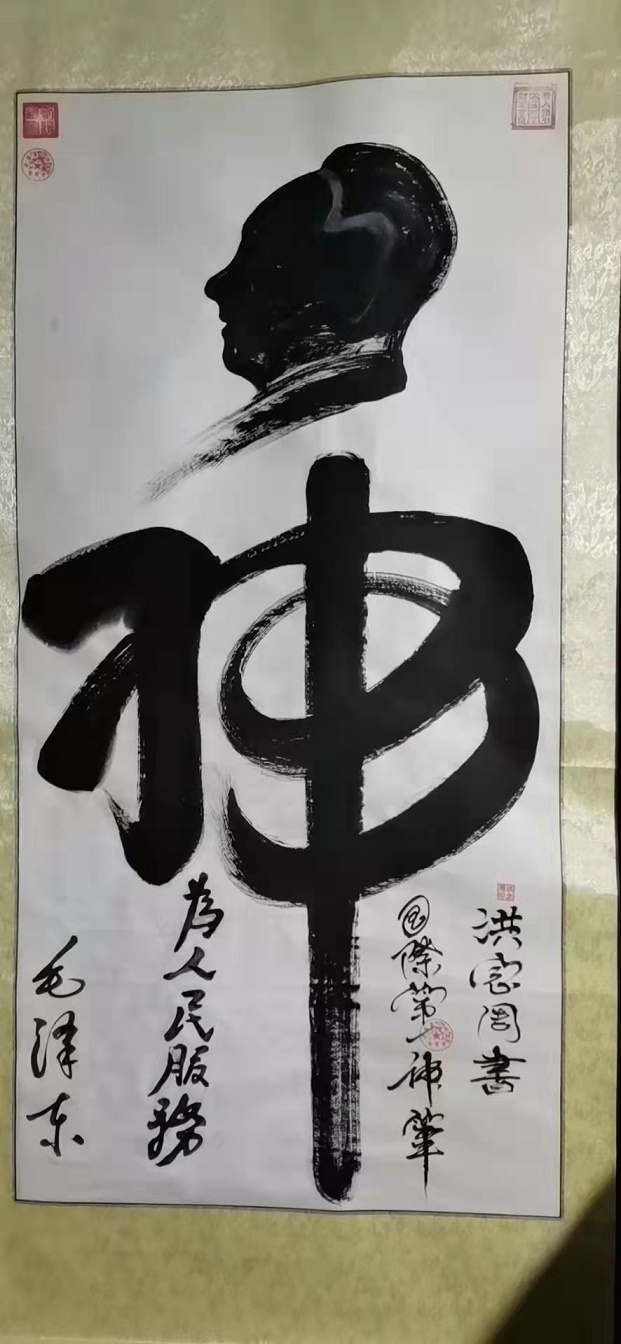 神
洪周書
国際第一神筆
為人民服務
毛泽东